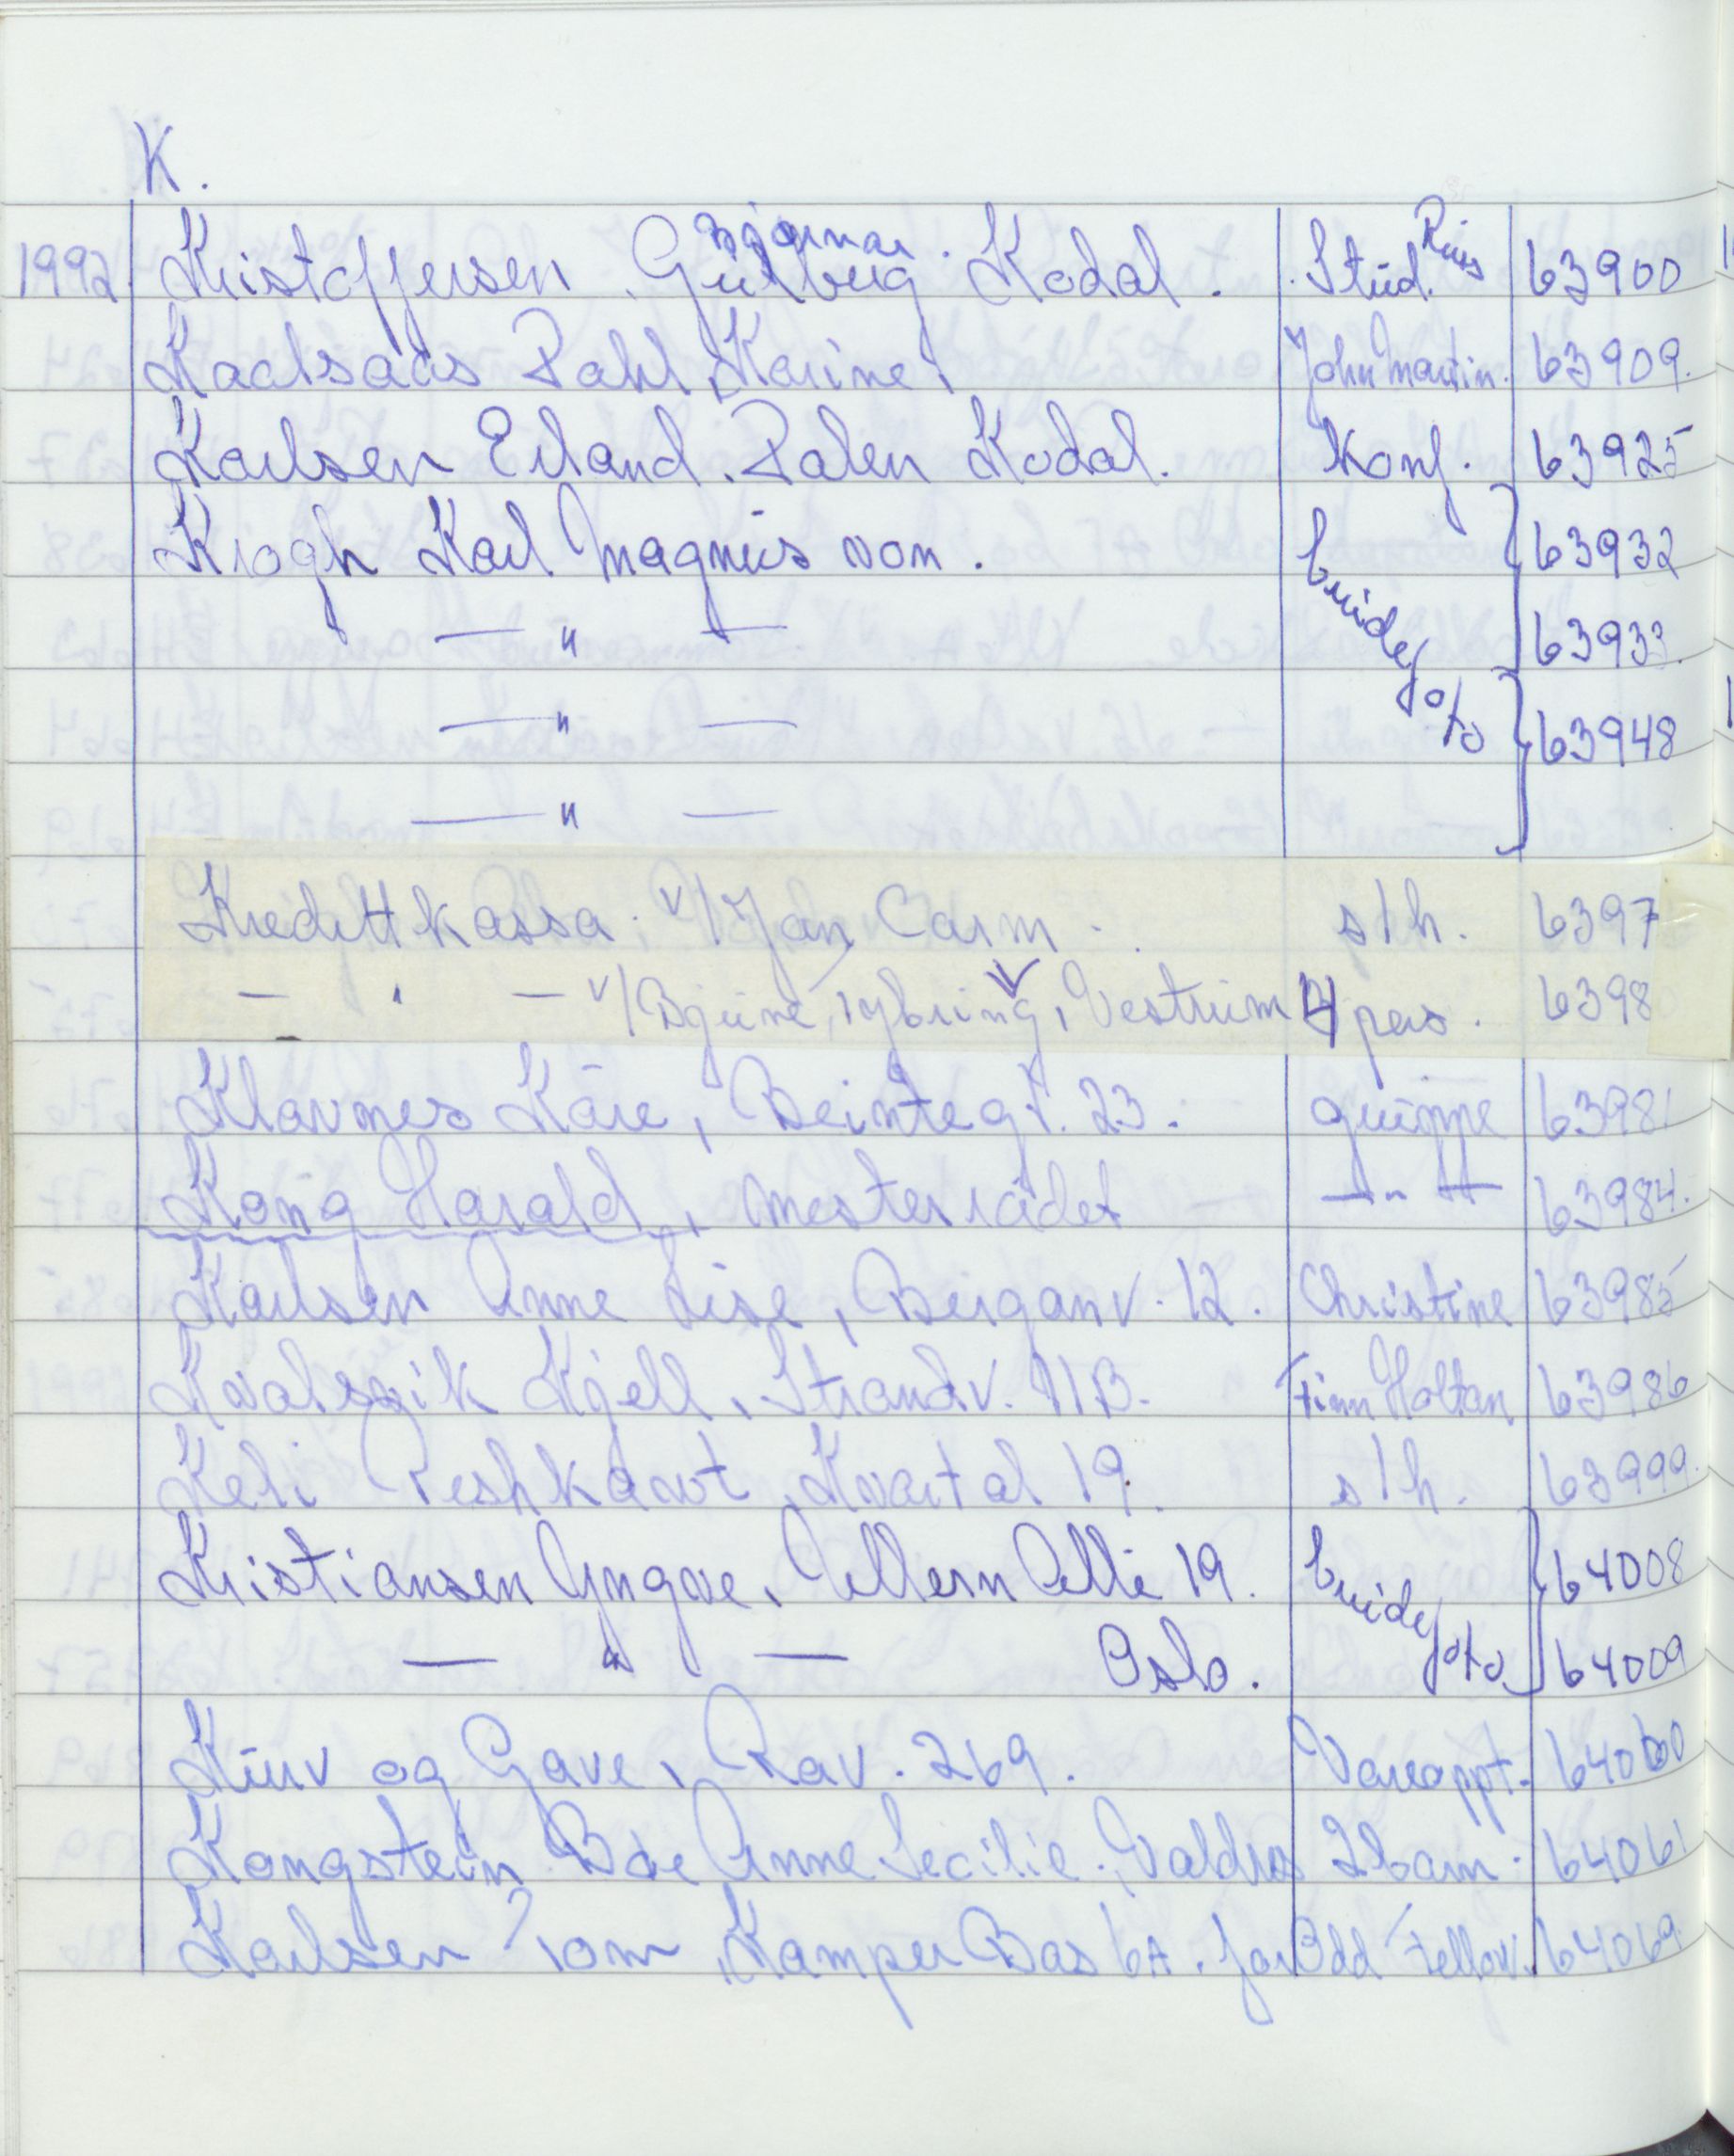 K.
Bjørnar.
1992. Kristoffersen Gulberg Kodal. Stud. Russ 63900
Kaalsaas Dahl, Karine, John Martin. 63909.
Karlsen Erland. Dalen Kodal. Konf. 63925
Krogh Karl Magnus von. brudef 63932
— " — 63933.
— " — o/ 63948
— " —
Kredittkassa. v/ Jan Carm. s/h. 6397
— " — v/ Bjune, Nybring, Vestrum 4 pers. 6398
Klavnes Kåre, Beintegt. 23. gruppe 63981
Kong Harald, Mesterrådet — " — 63984.
Karlsen Anne Lise, Berganv. 12. Christine 63985
Kvalsvik Kjell, Strandv. 11B. Finn Holtan 63986
Keli Peshkawt, Kvartal 19. s/h. 63999.
Kristiansen Yngve, Ullern Allé 19. brudef 64008
— " — Oslo. 64009
Kurv og Gave, Rav. 269. Vareoppt. 64060
Kongstein Bøe Anne Cecilie. Valdres 2 barn. 64061
Karlsen Tom, Kamper Bas 6A. for Odd Fellow. 64069